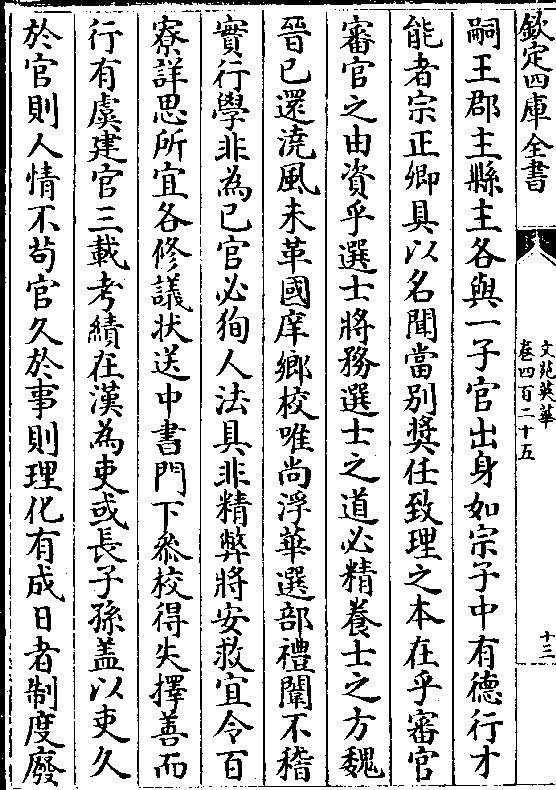 欽定四庫全書
文苑英華
卷四百二十五
十三
嗣王郡主縣主各與一子官出身如宗子中有德行才
能者宗正卿具以名聞當别奬任致理之本在乎審官
審官之由資乎選士將務選士之道必精養士之方魏
晉已還澆風未革國庠鄉校唯尚浮華選部禮闈不稽
實行學非為已官必狥人法具非精弊將安救宜令百
寮詳思所宜各修議状送中書門下叅校得失擇善而
行有虞建官三載考績在漢為吏或長子孫盖以吏久
於官則人情不苟官久於事則理化有成日者制度廢